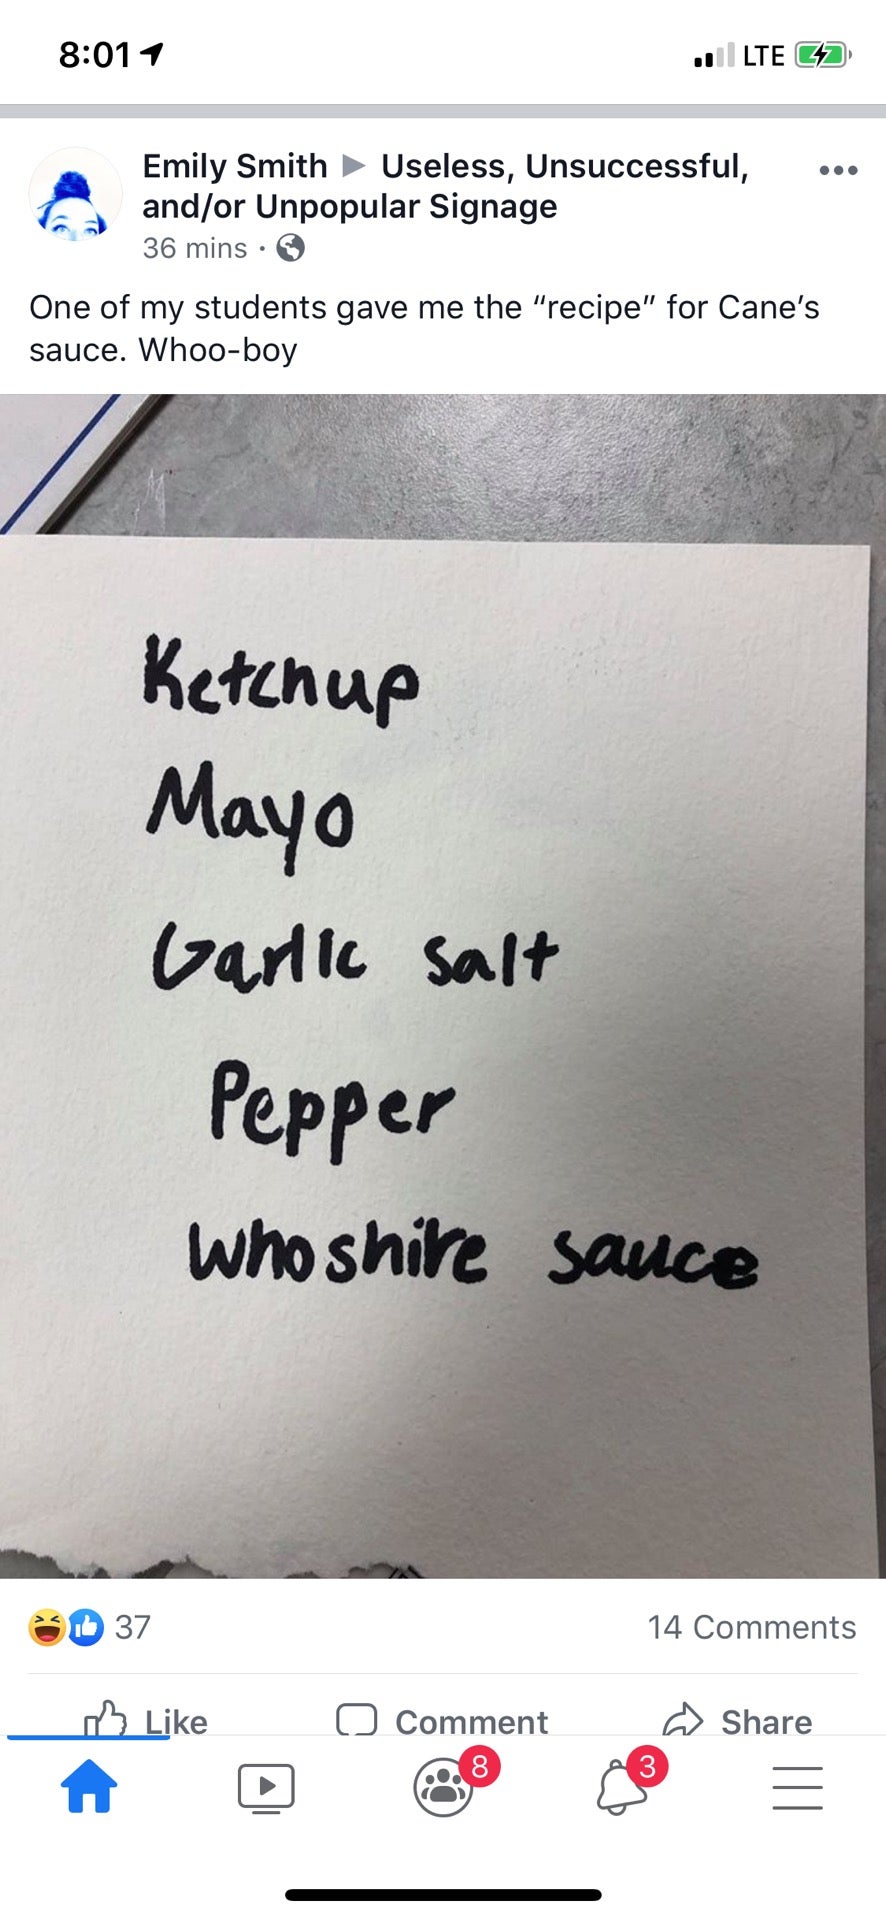 8:01
LTE
Emily Smith ▶ Useless, Unsuccessful,
and/or Unpopular Signage
36 mins ·
One of my students gave me the “recipe” for Cane’s
sauce. Whoo-boy
Ketchup
Mayo
Garlic salt
Pepper
Whoshire sauce
37
14 Comments
Like
Comment
Share
8
3